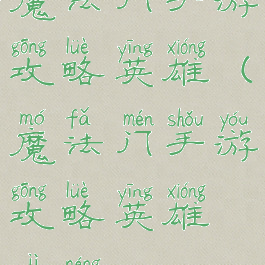 魔法门手游
gōng lüè yīng xióng
攻略英雄（
mó fǎ mén shǒu yóu
魔法门手游
gōng lüè yīng xióng
攻略英雄